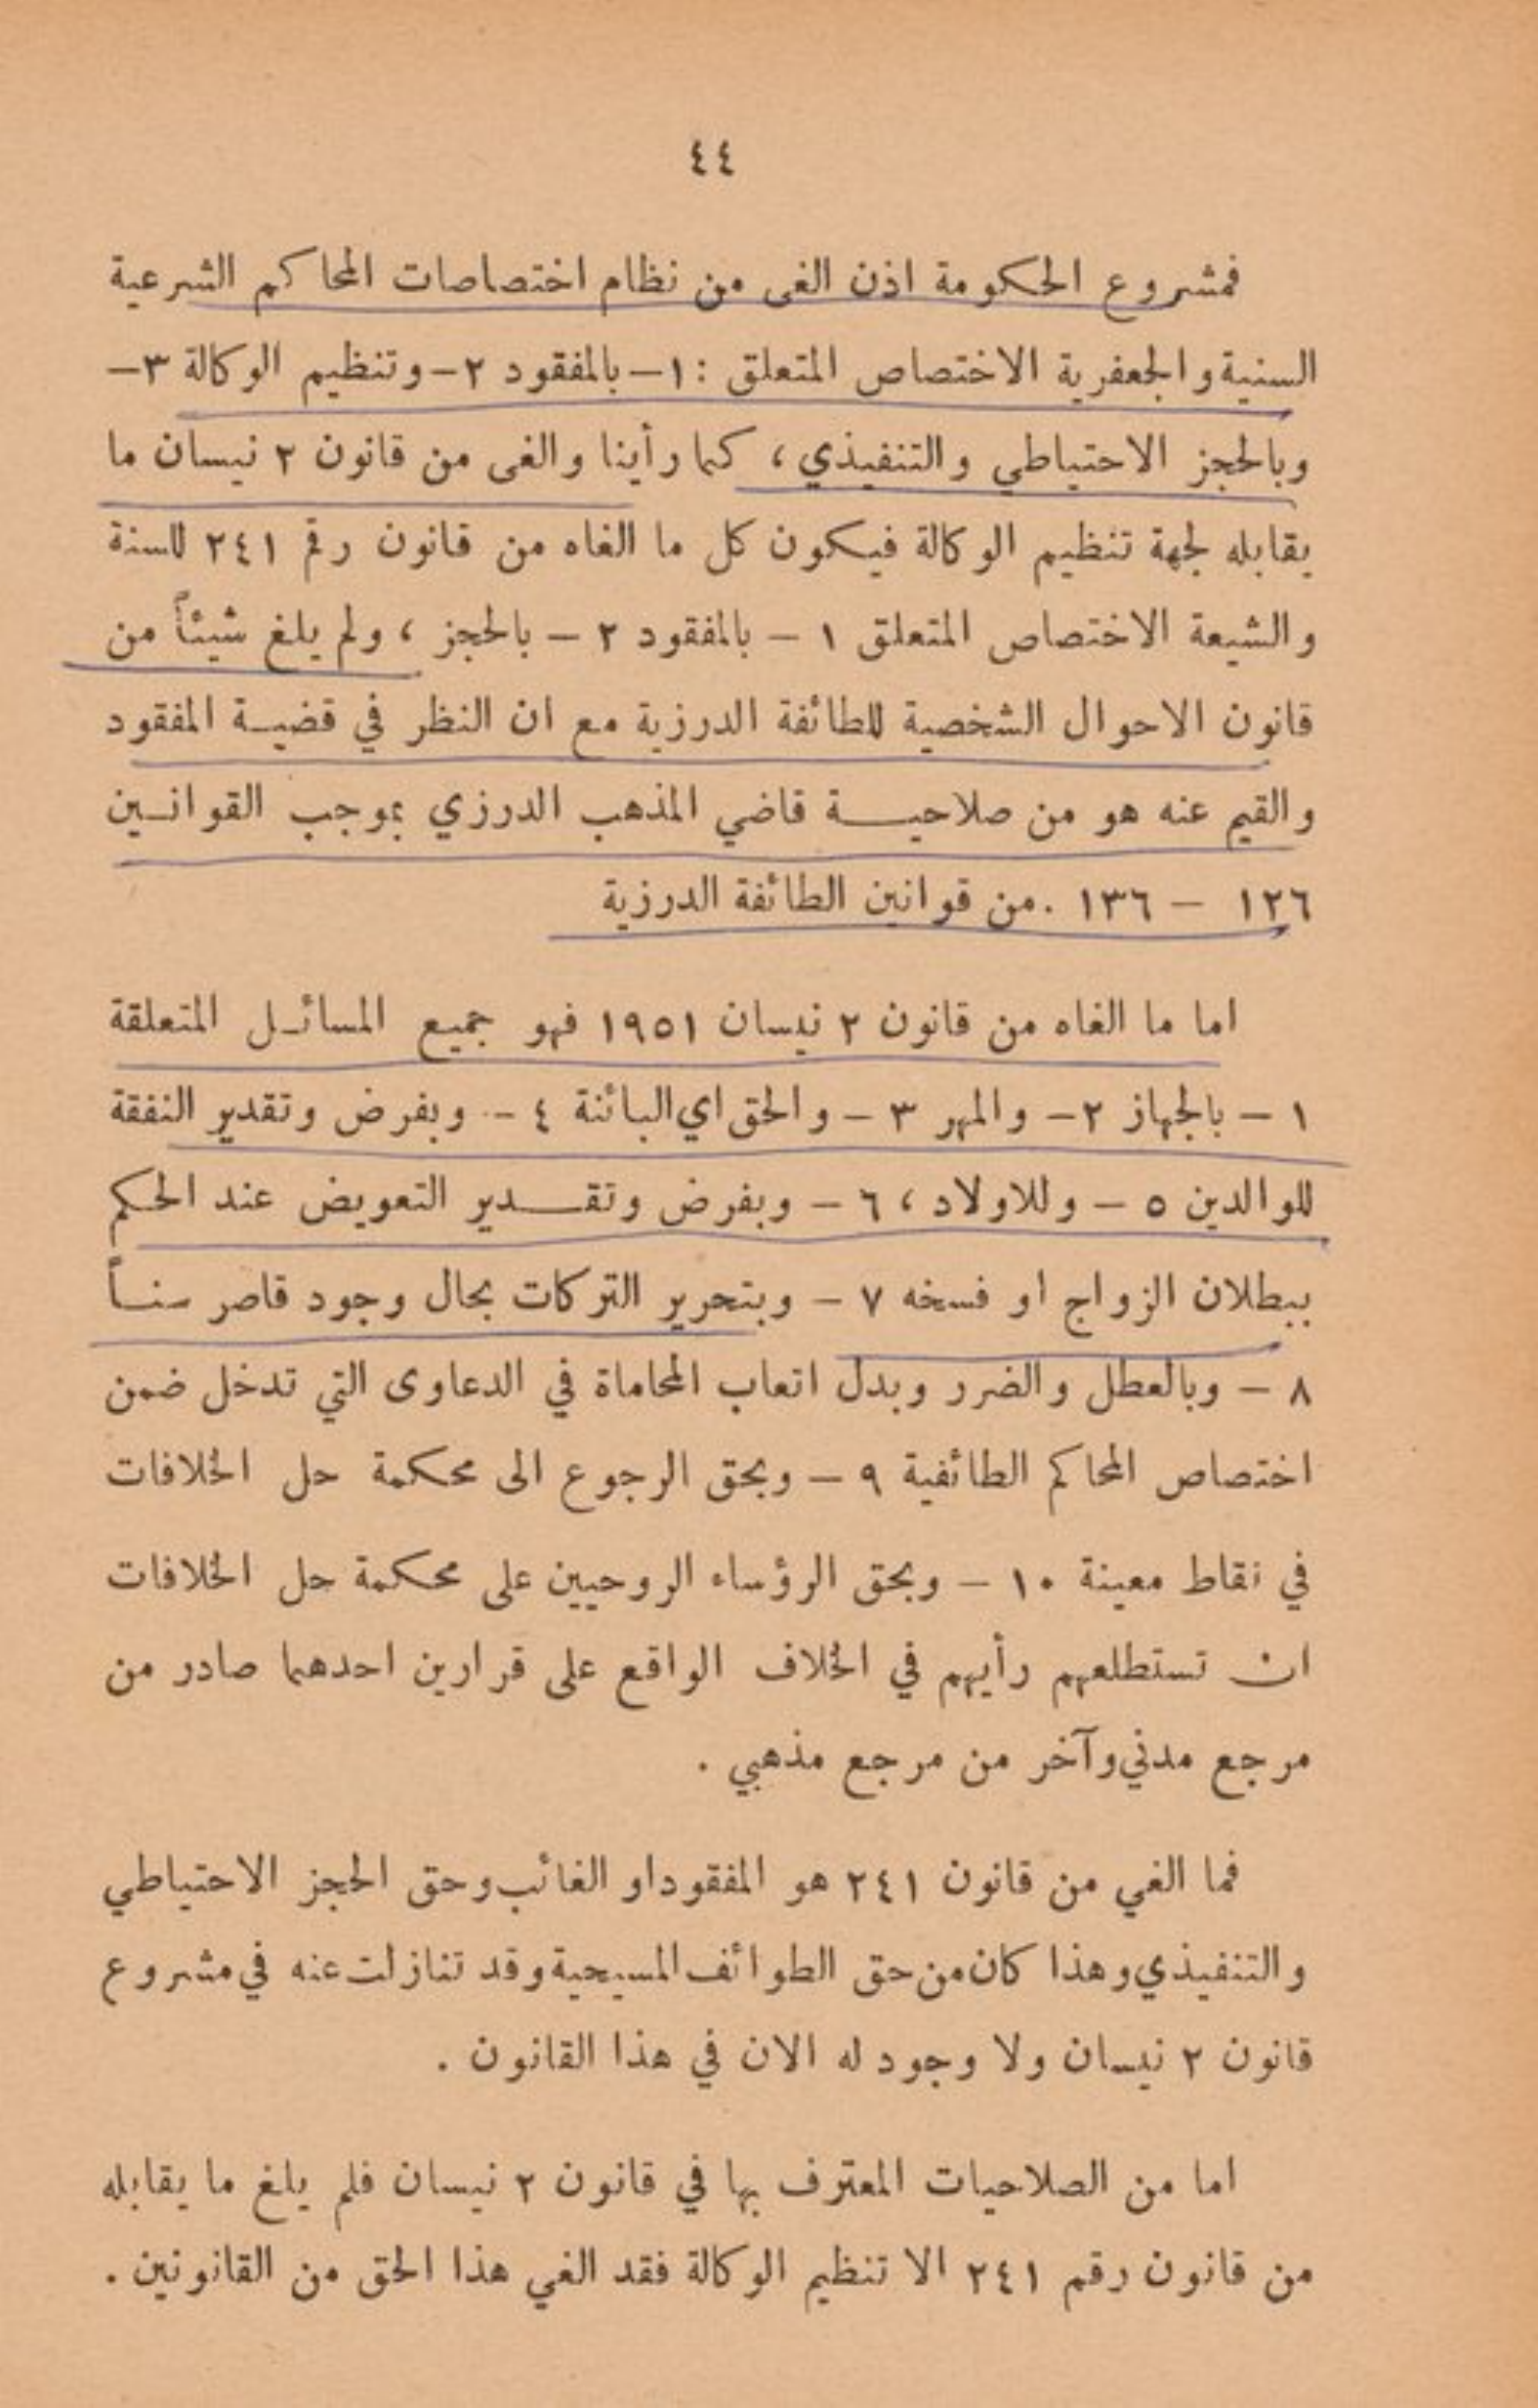 ٤٤
فمشروع الحكومة اذن الغى من نظام اختصاصات المحاكم الشرعية
السنية والجعفرية الاختصاص المتعلق : ١ – بالمفقود ٢ – وتنظيم الوكالة ٣ –
وبالحجز الاحتياطي والتنفيذي ، كما رأينا والغى من قانون ٢ نيسان ما
يقابله لجهة تنظيم الوكالة فيكون كل ما الغاه من قانون رقم ٢٤١ للسنة
والشيعة الاختصاص المتعلق ١ – بالمفقود ٢ – بالحجز ، ولم يلغ شيئاً من
قانون الاحوال الشخصية للطائفة الدرزية مع ان النظر في قضية المفقود
والقيم عنه هو من صلاحية قاضي المذهب الدرزي بموجب القوانين
١٢٦ – ١٣٦ . من قوانين الطائفة الدرزية
اما ما الغاه من قانون ٢ نيسان ١٩٥١ فهو جميع المسائل المتعلقة
١ – بالجهاز ٢ – والمهر ٣ – والحق اي البائنة ٤ – وبفرض وتقدير النفقة
للوالدين ٥ – وللاولاد ، ٦ – وبفرض وتقدير التعويض عند الحكم
ببطلان الزواج او فسخه ٧ – وبتحرير التركات بحال وجود قاصر سناً
٨ – وبالعطل والضرر وبدل اتعاب المحاماة في الدعاوى التي تدخل ضمن
اختصاص المحاكم الطائفية ٩ – وبحق الرجوع الى محكمة حل الخلافات
في نقاط معينة ١٠ – وبحق الرؤساء الروحيين على محكمة حل الخلافات
ان تستطلعهم رأيهم في الخلاف الواقع على قرارين احدهما صادر من
مرجع مدني وآخر من مرجع مذهبي .
فما الغي من قانون ٢٤١ هو المفقود او الغائب وحق الحجز الاحتياطي
والتنفيذي وهذا كان من حق الطوائف المسيحية وقد تنازلت عنه في مشروع
قانون ٢ نيسان ولا وجود له الان في هذا القانون .
اما من الصلاحيات المعترف بها في قانون ٢ نيسان فلم يلغ ما يقابله
من قانون رقم ٢٤١ الا تنظيم الوكالة فقد الغي هذا الحق من القانونين .